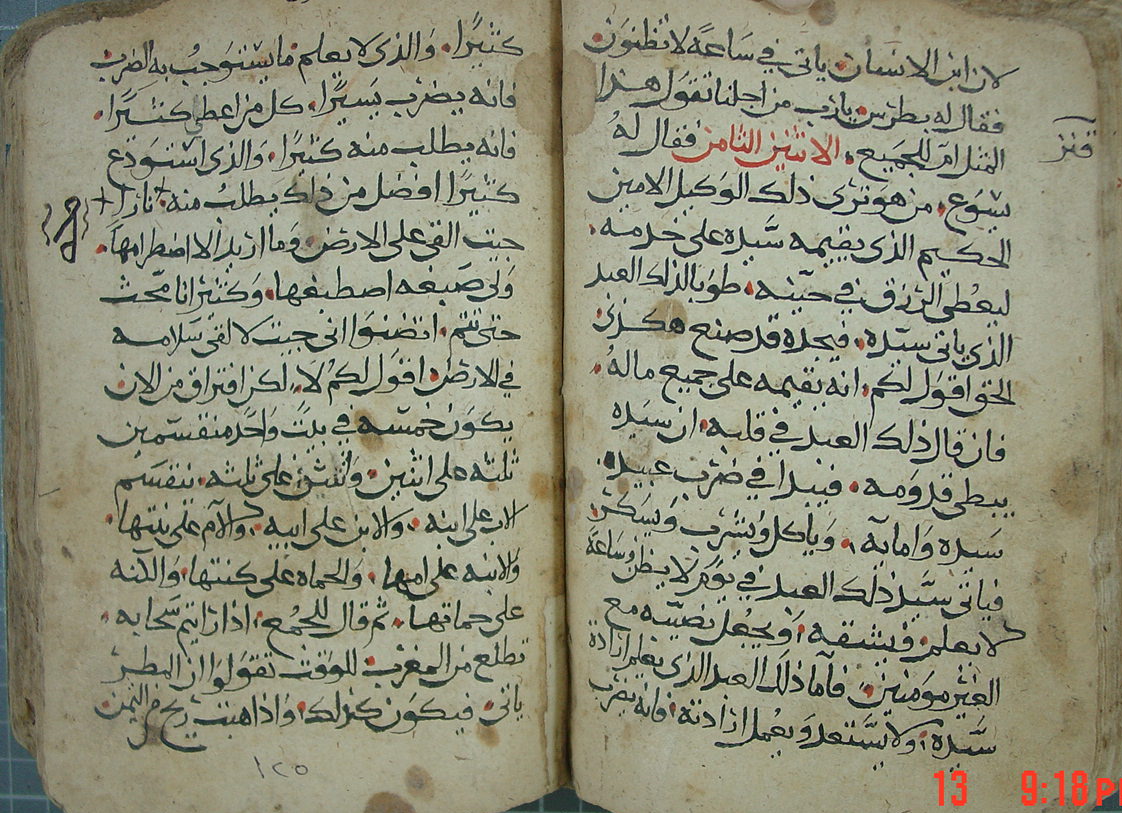 لان ابن الانسان ياتي في ساعة لا تظنون
فقال له بطرس يارب من اجلنا تقول هذا
المثل ام للجميع الاثنين الثامن فقال له
قنز
يسوع من هو ترى ذلك الوكيل الامين
الحكيم الذي يقيمه سيده على خدمه
ليعطي الرزق في حينه طوبا لذلك العبد
الذي ياتي سيده فيجده قد صنع هكذى
الحق اقول لكم انه يقيمه على جميع ماله
فان قال ذلك العبد في قلبه ان سيده
يبطي قدومه فيبدا في ضرب عبيد
سيده واماية وياكل ويشرب ويسكر
فياتي سيد ذلك العبد في يوم لا يظن وساعة
لا يعلم فيشقه ويجعل نصيبه مع
الغير مومنين فاما ذلك العبد الذي يعلم ارادة
سيده ولا يستعد ويعمل ارادته فانه يضرب
كثيرا والذي لا يعلم ما يستوجب به الضرب
فانه يضرب يسيرا كل من اعطي كثيرا
فانه يطلب منه كثيرا والذي استودع
كثيرا افضل من ذلك يطلب منه نارا
جيت القي على الارض وما اريد الا اضطرامها
ولي صبغه اصطبغها وكثيرا انا محث
حتى تتم اتضنوا اني جيت لالقي سلامه
في الارض اقول لكم لا لكن افتراق من الان
يكون خمسه في بيت واحد منقسمين
ثلثه على اثنين واثنين على ثلثه ينقسم
الاب على ابنه والابن على ابيه والام على بنتها
والابنه على امها والحماه على كنتها والكنه
على حماتها ثم قال للجمع اذا رايتم سحابه
تطلع من المغرب للوقت تقولوا ان المطر
ياتي فيكون كذلك واذا هبت ريح التيمن
١٢٥
13 9:18PM